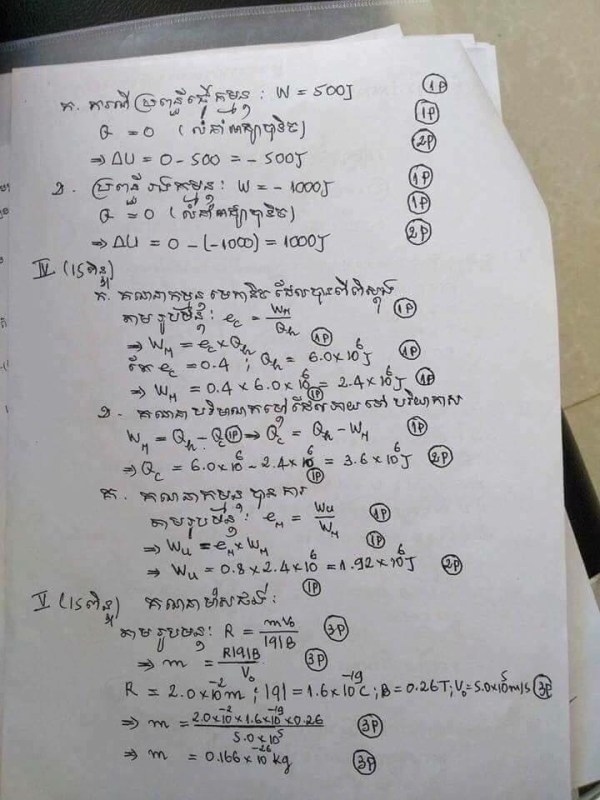 ក. ករណីប្រព័ន្ធធ្វើកម្មន្ត : W = 500J (1P)
Q = 0 (លំនាំអាដ្យាបាទិច) (1P)
⇒ ΔU = 0 - 500 = - 500J (2P)
ខ. ប្រព័ន្ធរងកម្មន្ត: W = - 1000J (1P)
Q = 0 (លំនាំអាដ្យាបាទិច) (1P)
⇒ ΔU = 0 - (-1000) = 1000J (2P)
IV (15ពិន្ទុ)
ក. គណនាកម្មន្តមេកានិចដែលបានពីពីស្តុង
តាមរូបមន្ត: e_c = W_M/Q_h (1P)
⇒ W_M = e_c × Q_h (1P)
តែ e_c = 0.4 ; Q_h = 6.0×10^6 J (1P)
⇒ W_M = 0.4 × 6.0×10^6 = 2.4×10^6 J (1P) (1P)
ខ. គណនាបរិមាណកម្តៅដែលភាយទៅបរិយាកាស
W_M = Q_h - Q_c (1P) ⇒ Q_c = Q_h - W_M (1P)
⇒ Q_c = 6.0×10^6 - 2.4×10^6 = 3.6×10^6 J (2P) (1P)
គ. គណនាកម្មន្តបានការ
តាមរូបមន្ត: e_M = W_u/W_M (1P)
⇒ W_u = e_M × W_M (1P)
⇒ W_u = 0.8 × 2.4×10^6 = 1.92×10^6 J (2P) (1P)
V (15ពិន្ទុ) គណនាម៉ាស :
តាមរូបមន្ត: R = mV_0/|q|B (3P)
⇒ m = R|q|B/V_0 (3P)
R = 2.0×10^-2 m ; |q| = 1.6×10^-19 C ; B = 0.26T ; V_0 = 5.0×10^5 m/s (3P)
⇒ m = 2.0×10^-2 × 1.6×10^-19 × 0.26/5.0×10^5 (3P)
⇒ m = 0.166×10^-26 kg (3P)